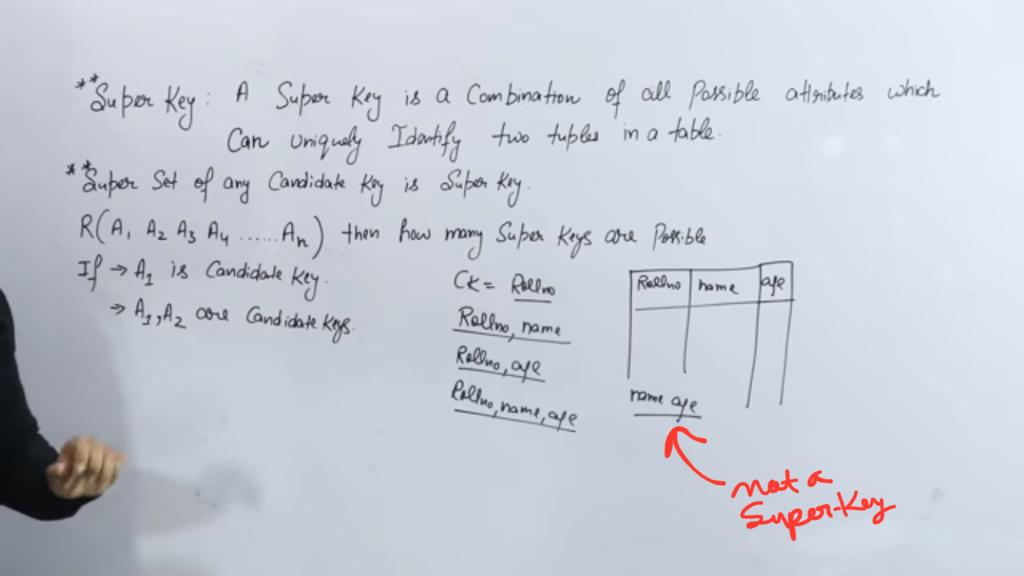 **Super Key: A Super Key is a Combination of all Possible attributes which
Can uniquely Identify two tuples in a table.
**Super Set of any Candidate Key is Super Key.
R(A1 A2 A3 A4 ...... An) then how many Super Keys are Possible
If → A1 is Candidate Key.
→ A1, A2 are Candidate Keys.
CK = Rollno
Rollno, name
Rollno, age
Rollno, name, age
Rollno name age
name age
not a
Super-Key